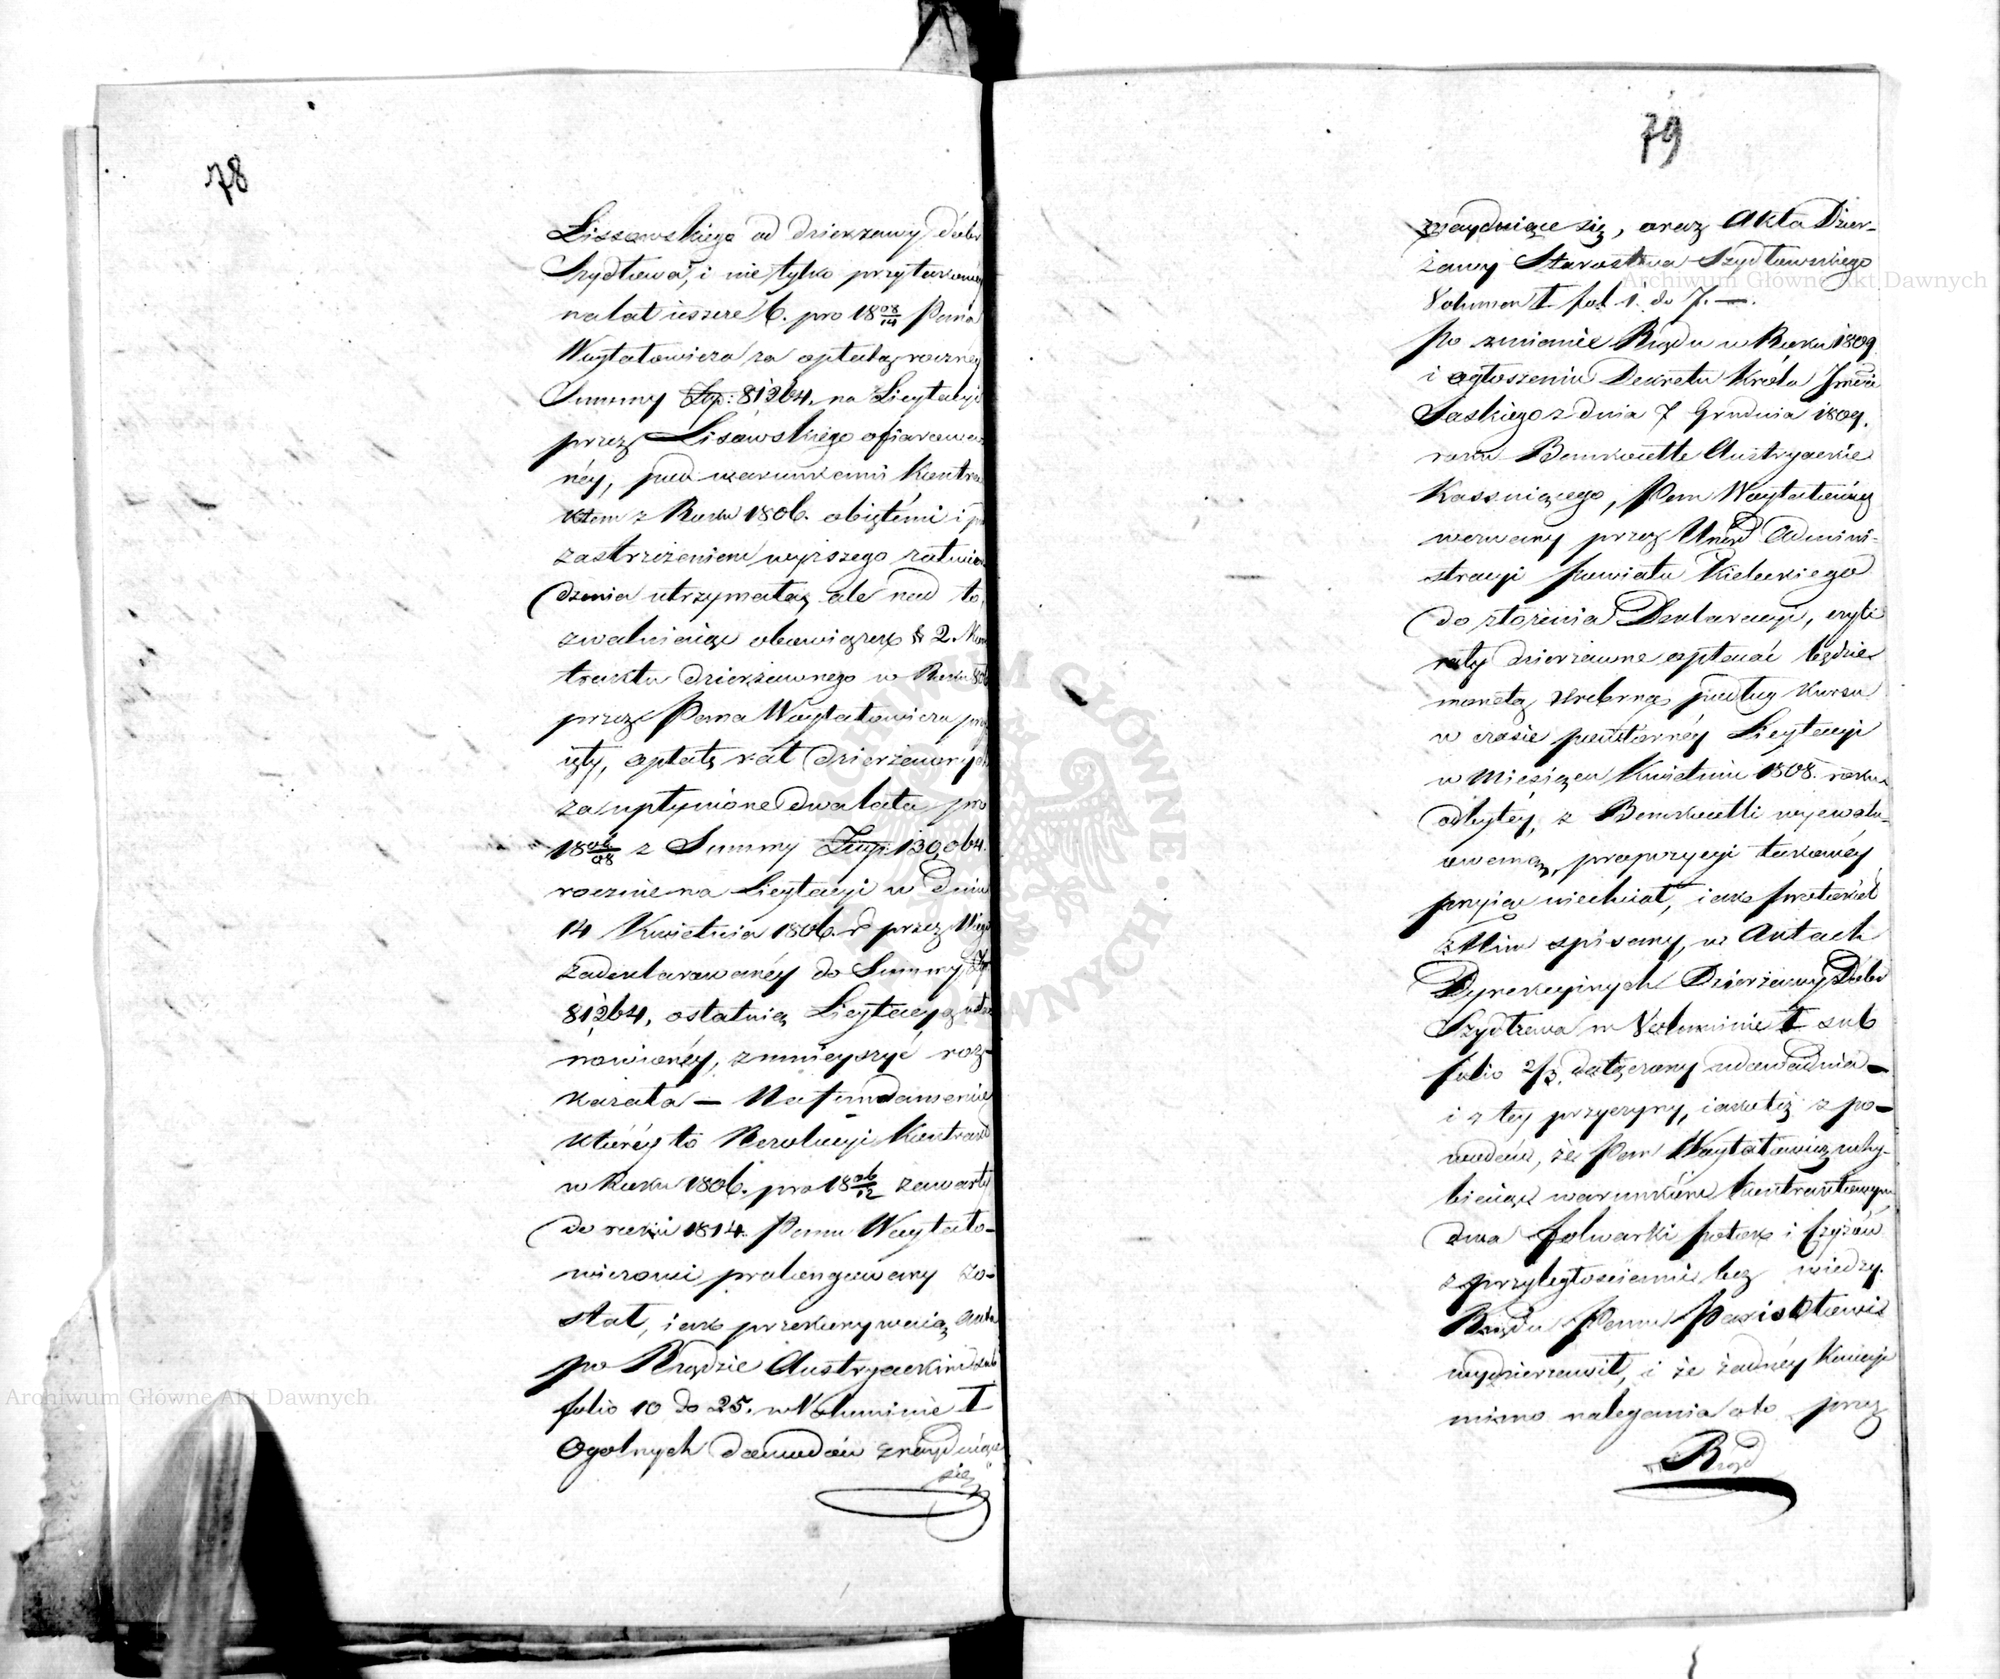 78
Lissowskiego od dzierzawy dóbr
Szydłowa, i nie tylko przy takowey
na lat ieszcze 6. pro 18 08/14 Pana
Woytatowicza za opłatą roczney
Summy Złp: 81264. na Licytacyi
przez Lisowskiego ofiarowa-
néy, pod warunkami Kontra-
ktem z Roku 1806. obiętémi i
zastrzeżeniem wyższego zatwier
dzenia utrzymała, ale nad to,
zwalniaiąc obowiązek § 2. Kon
traktu dzierżawnego w Roku 806
przez Pana Woytatowicza przy
ięty, opłatę rat dzierżawnych
za upłynione dwa lata pro
18 06/08 z Summy Złp: 130,064.
rocznie na Licytacyi w dniu
14 Kwietnia 1806. r przez Niego
zadeklarowanéy do Summy Złp
81264, ostatnią Licytacyą
nowionéy, zmnieyszyć roz-
kazała — Na fundamencie
któréy to Rezolucyi Kontrakt
w Roku 1806. pro 18 06/12 zawarty
do roku 1814. Panu Woytato-
wiczowi prolongowany zo-
stał, iak przekonywaią Akta
po Rządzie Austryackim sub
folio 10 do 25. w Voluminie I
Ogolnych dowodów znayduiące
się
79
znayduiące się, oraz Akta Dzier-
żawy Starostwa Szydłowskiego
Volumen I fol 1. do 7. —.
Po zmianie Rządu w Roku 1809
i ogłoszeniu Dekretu Króla Jmci
Saskiego z dnia 7 Grudnia 1809.
roku Bankocetle Austryackie
Kassuiącego, Pan Woytatowicz
wezwany przez Urząd Admini-
stracyi Powiatu Kieleckiego
do złożenia Deklaracyi, czyli
raty dzierżawne opłacać będzie
monetą srebrną podług Kursu
w czasie powtórnéy Licytacyi
w Miesiącu Kwietniu 1808. roku
odbytéy, z Bankocetli wyewalu-
owaną, propozycyi takowéy
przyiąć niechciał, iak Protokół
z Nim spisany, w Aktach
Dyrekcyinych Dzierżawy Dóbr
Szydłowa w Voluminie I sub
folio 2/3. dołączony udowadnia —
i z tey przyczyny, iakoteż z po-
wodów, że Pan Woytatowicz uchy-
biaiąc warunkóm Kontraktowym
dwa folwarki Potok i Czyżów
z przyległościami bez wiedzy
Rządu Panu
wydzierzawił, i że żadnéy Kaucyi
mimo nalegania o to przez
Rząd
Archiwum Główne Akt Dawnych
Archiwum Główne Akt Dawnych